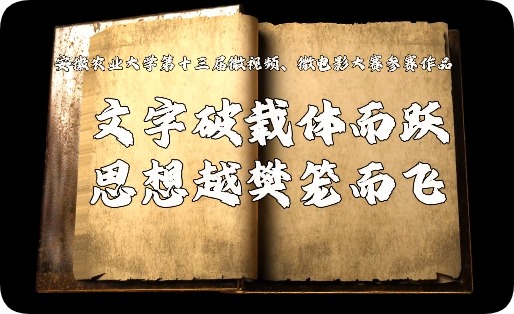 安徽农业大学第十三届微视频、微电影大赛参赛作品
文字破载体而跃
思想越樊笼而飞